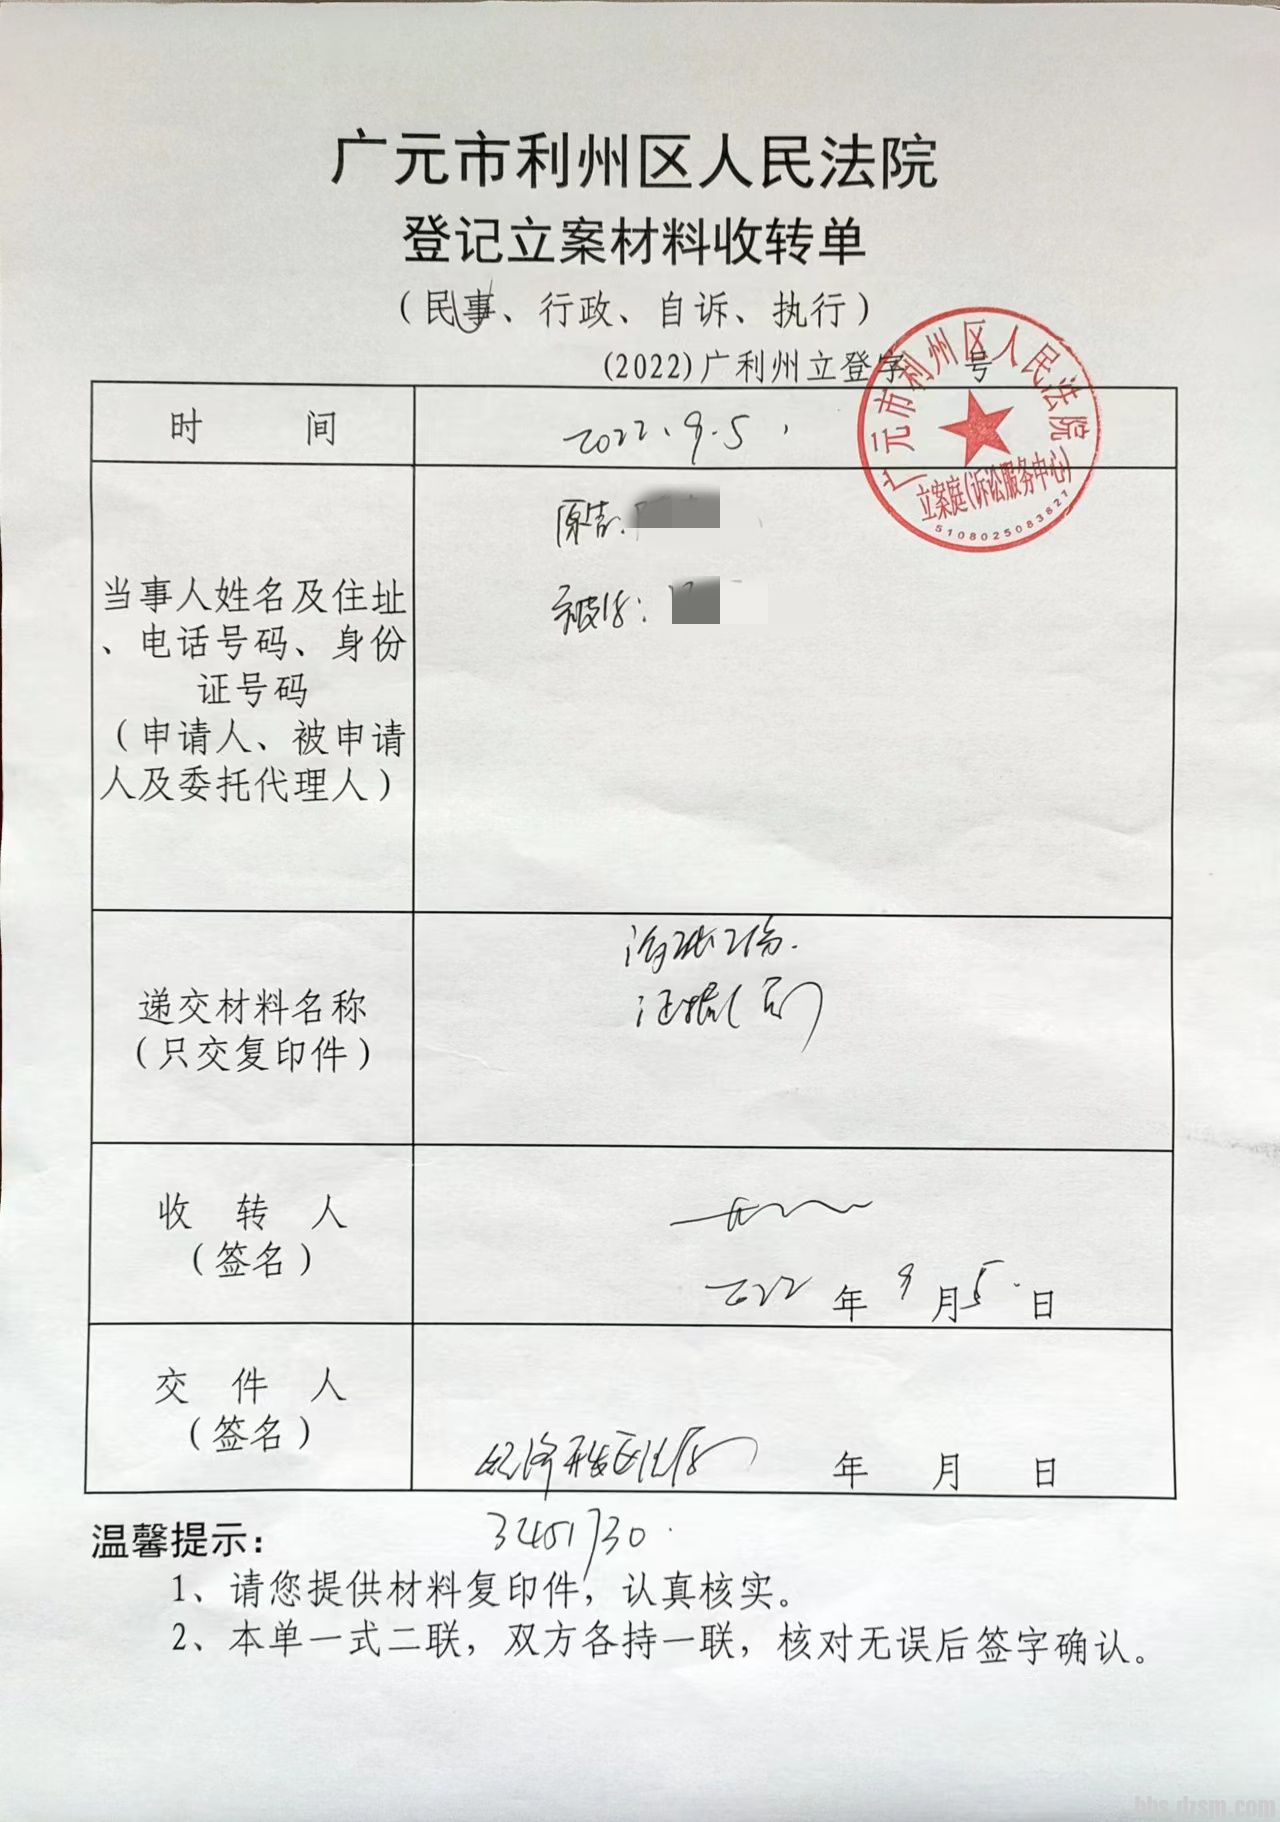 广元市利州区人民法院
登记立案材料收转单
（民事、行政、自诉、执行）
(2022)广利州立登字 号
广元市利州区人民法院
立案庭(诉讼服务中心)
5108025083827
时 间
2022.9.5
当事人姓名及住址
、电话号码、身份
证号码
（申请人、被申请
人及委托代理人）
原告:
被告:
递交材料名称
（只交复印件）
诉状2份.
证据1份
收 转 人
（签名）
2022 年 9 月 5 日
交 件 人
（签名）
经济开发区法庭
年 月 日
3451730
温馨提示:
1、请您提供材料复印件，认真核实。
2、本单一式二联，双方各持一联，核对无误后签字确认。
bbs.dzsm.com